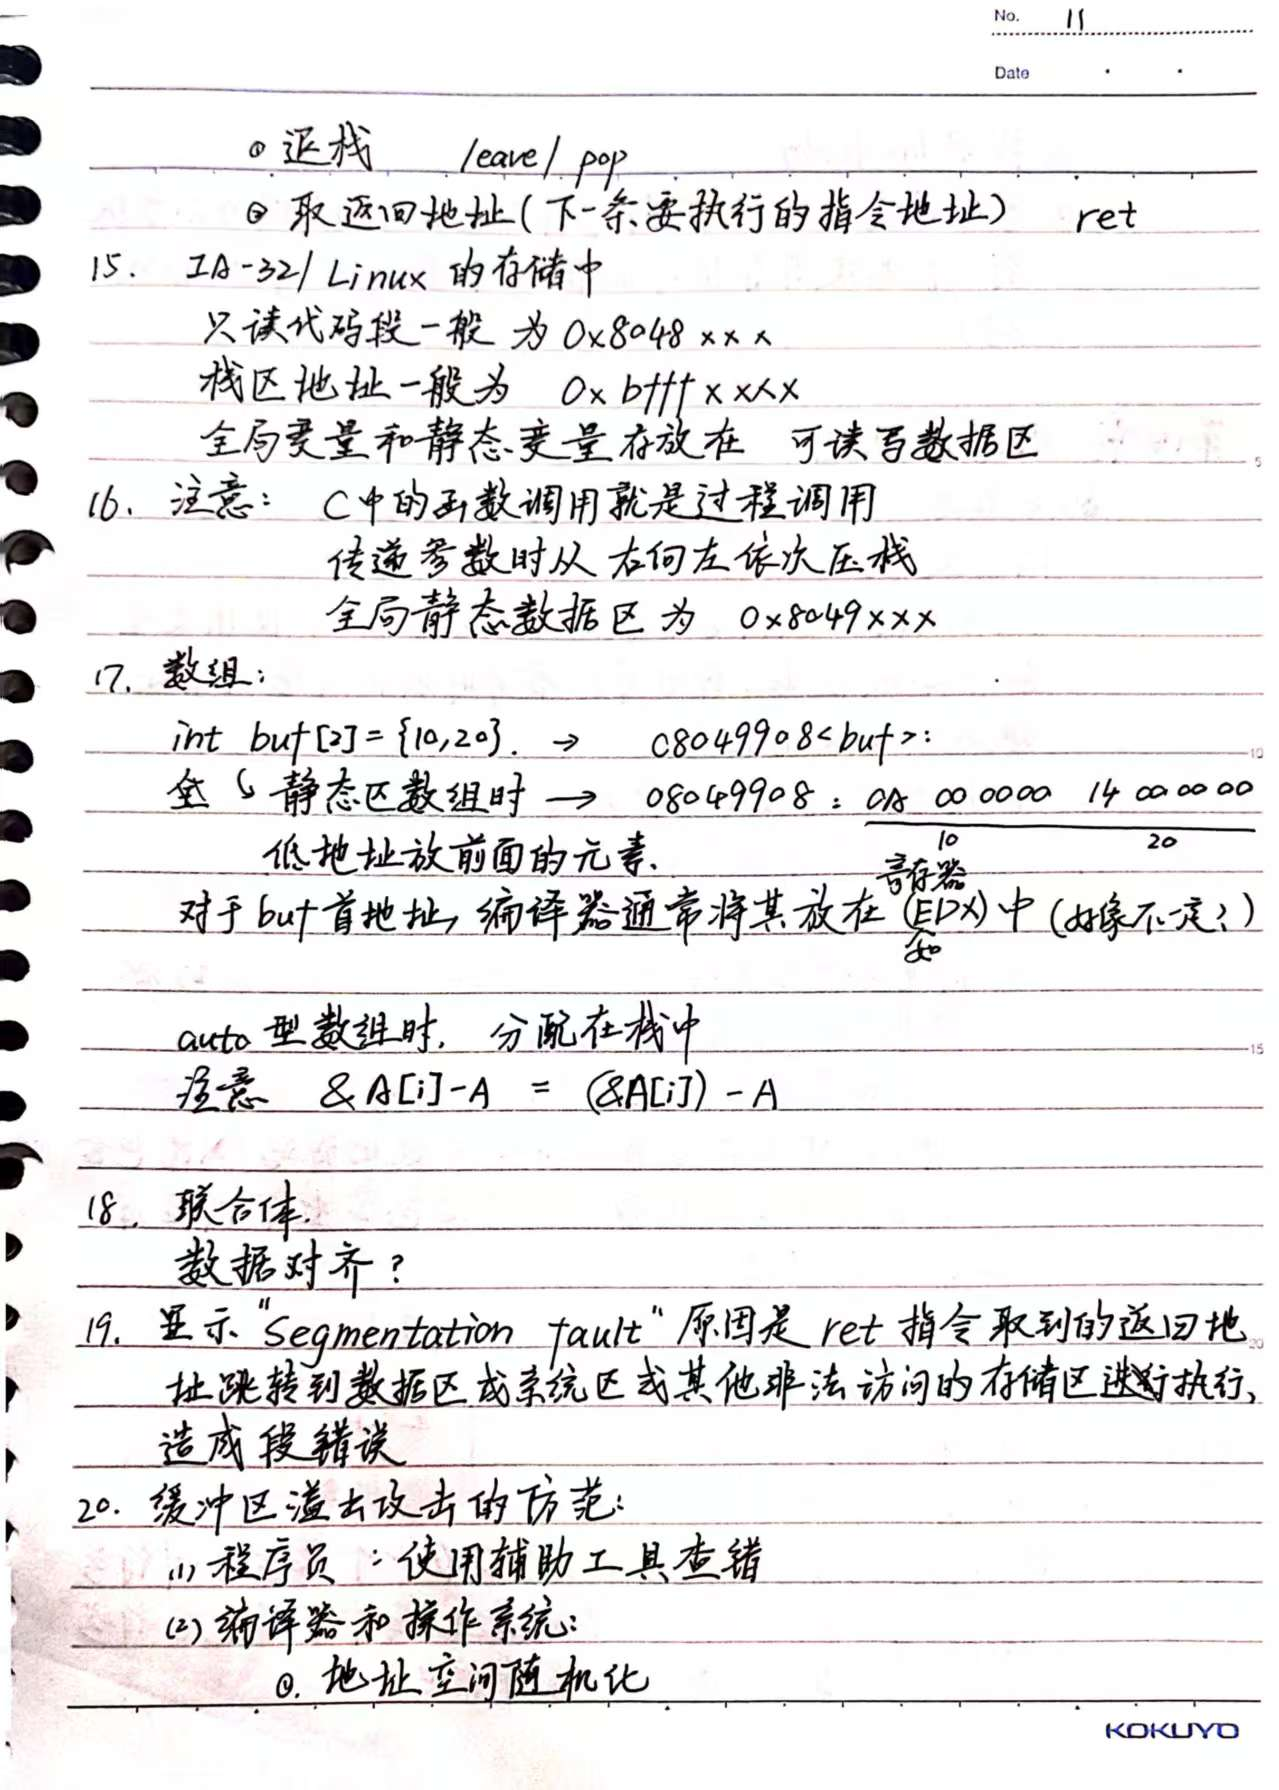 No. 11
Date
① 退栈 leave/pop
② 取返回地址(下一条要执行的指令地址) ret
15. IA-32/Linux 的存储中
只读代码段一般 为 0x8048xxx
栈区地址一般为 0xbfffxxxx
全局变量和静态变量存放在 可读写数据区
16. 注意: C中的函数调用就是过程调用
传递参数时从右向左依次压栈
全局静态数据区为 0x8049xxx
17. 数组:
int buf[2]={10,20}. → 08049908<buf>:
静态区数组时 → 08049908: 0A 00 00 00 14 00 00 00
10 20
低地址放前面的元素.
寄存器
对于buf首地址, 编译器通常将其放在(EDX)中(好像不一定?)
如
auto型数组时, 分配在栈中
注意 &A[i]-A = (&A[i])-A
18. 联合体.
数据对齐?
19. 显示"Segmentation fault"原因是 ret 指令取到的返回地
址跳转到数据区或系统区或其他非法访问的存储区进行执行,
造成段错误
20. 缓冲区溢出攻击的防范:
(1) 程序员: 使用辅助工具查错
(2) 编译器和操作系统:
①. 地址空间随机化
5
10
15
20
KOKUYO